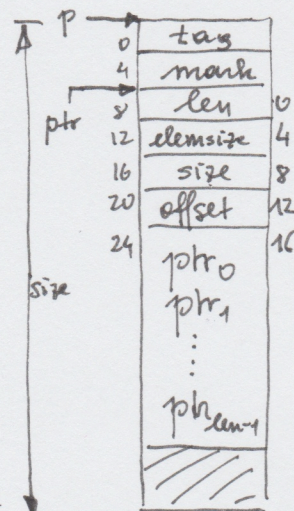 p
0 tag
4 mark
ptr
8 len 0
12 elemsize 4
16 size 8
20 offset 12
24 16
size
ptr0
ptr1
⋮
ptrlen-1